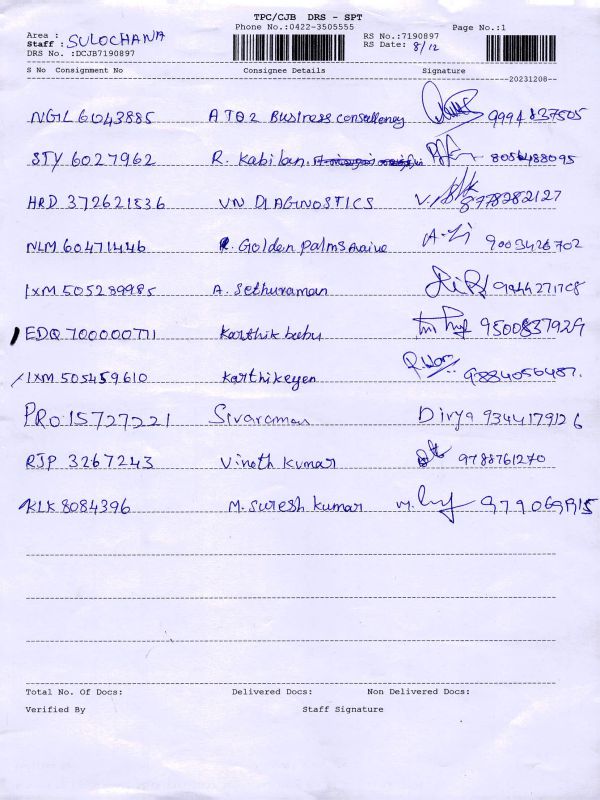 TPC/CJB DRS - SPT
Phone No.:0422-3505555 Page No.:1
Area : RS No.:7190897
Staff : SULOCHANA RS Date: 8/12
DRS No. :DCJB7190897
S No Consignment No Consignee Details Signature
20231208
NGL 6043885 A TO Z Business consultency 9994837505
STY 6027962 R. Kabilan. 8056488095
HRD 372621836 VN DIAGNOSTICS 8778282127
NLM 60471446 R. Golden Palms 9003426702
IXM 505289985 A. Sethuraman 9944271708
EDQ 700000771 Karthik babu 9500837929
IXM 505459610 Karthikeyen 9884056487.
PRO 15727221 Sivaraman Divya 9344179126
RJP 3267243 Vinoth Kumar 9788761270
KLK 8084396 M. Suresh Kumar
Total No. Of Docs: Delivered Docs: Non Delivered Docs:
Verified By Staff Signature